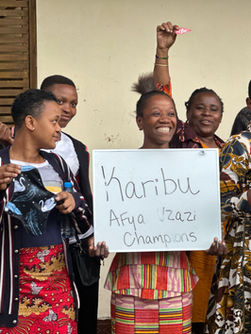 Karibu
Afya Uzazi
Champions